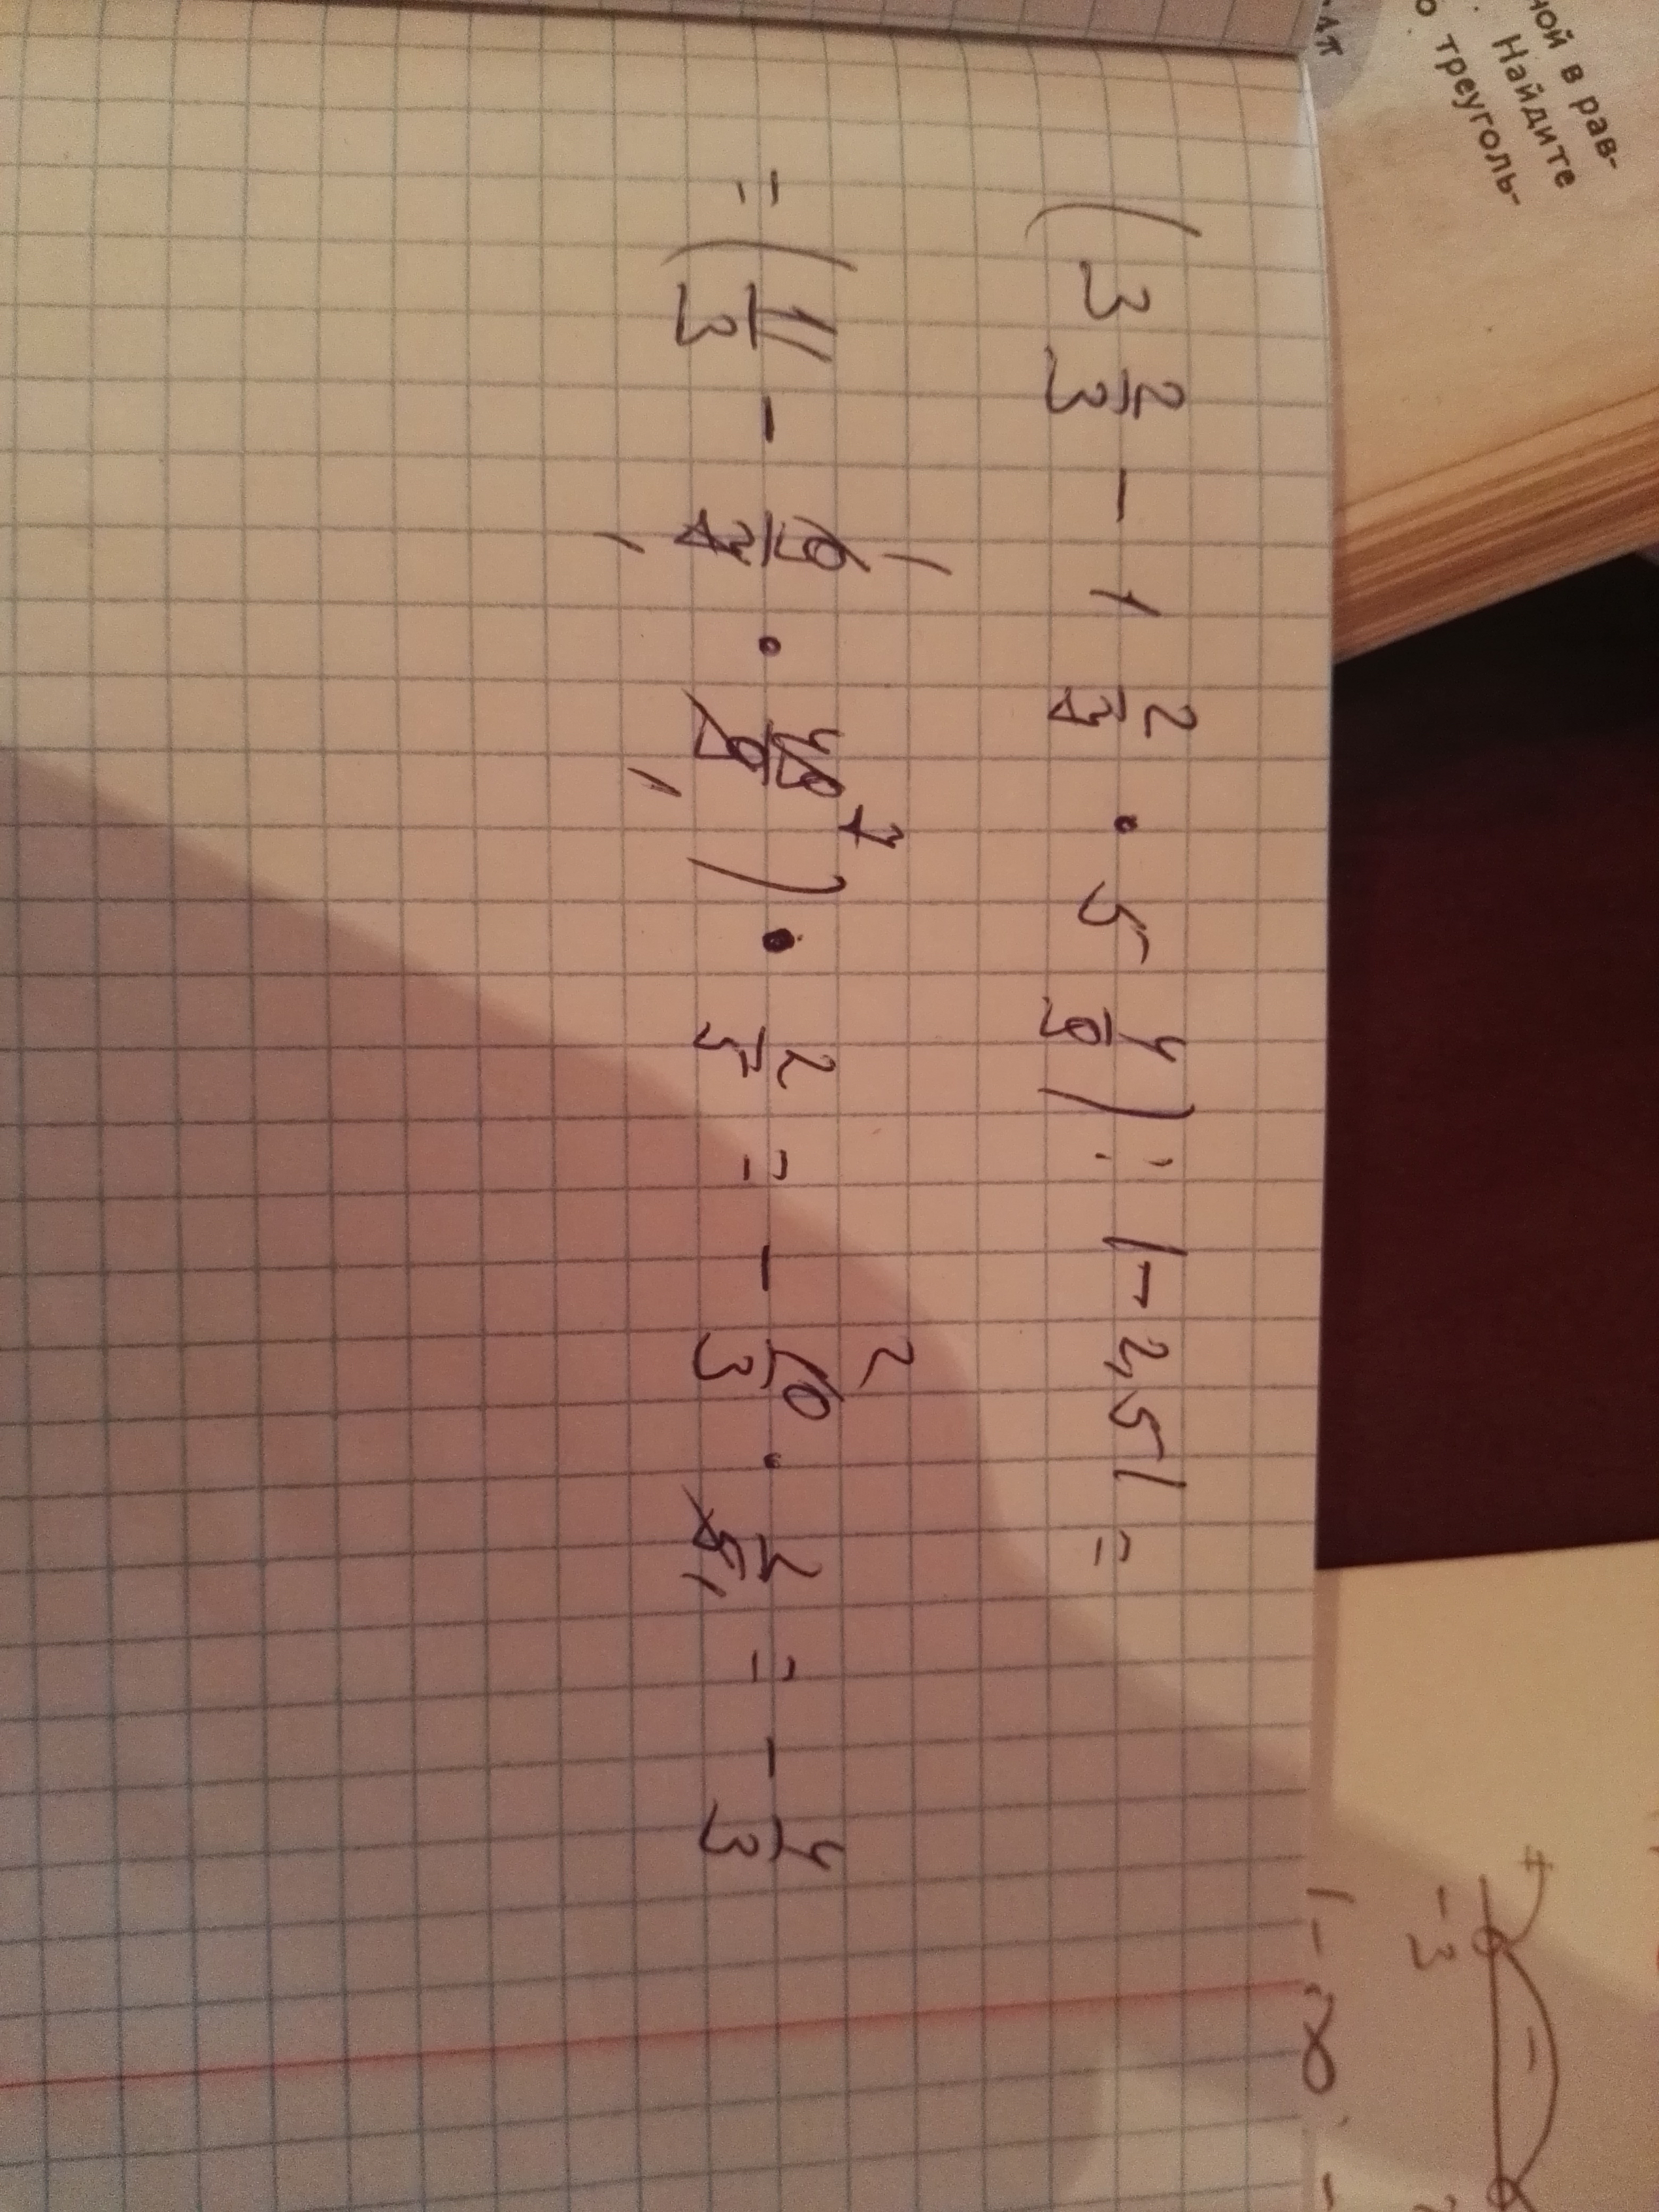 ной в рав-
. Найдите
о треуголь-
(3 2/3 - 1 2/7 · 5 4/9) : |-2,5| =
= (11/3 - 9/7 · 49/9) · 2/5 = - 10/3 · 2/5 = - 4/3
1 1 7 1 2 1
-3